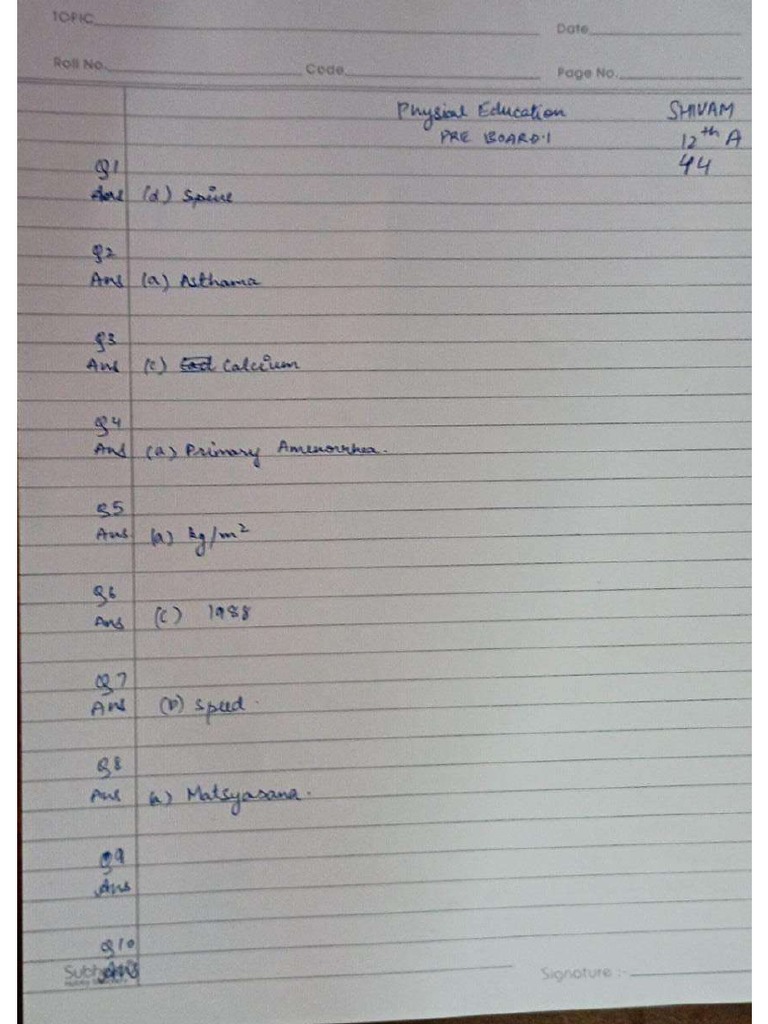 TOPIC
Date
Roll No.
Code
Page No.
Physical Education
SHIVAM
PRE BOARD-1
12th A
44
Q1
Ans (d) Spine
Q2
Ans (a) Asthama
Q3
Ans (c) Calcium
Q4
Ans (a) Primary Amenorrhea.
Q5
Ans (a) kg/m²
Q6
Ans (c) 1988
Q7
Ans (b) Speed.
Q8
Ans (a) Matsyasana.
Q9
Ans
Q10
Ans
Signature :-